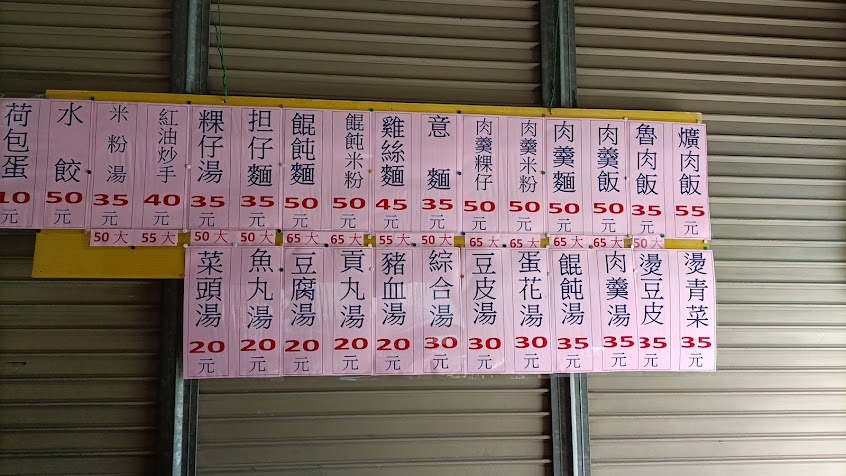 爌肉飯 55元
魯肉飯 35元 50大
肉羹飯 50元 65大
肉羹麵 50元 65大
肉羹米粉 50元 65大
肉羹粿仔 50元 65大
意麵 35元 50大
雞絲麵 45元 55大
餛飩米粉 50元 65大
餛飩麵 50元 65大
担仔麵 35元 50大
粿仔湯 35元 50大
紅油炒手 40元 55大
米粉湯 35元 50大
水餃 50元
荷包蛋 10元
燙青菜 35元
燙豆皮 35元
肉羹湯 35元
餛飩湯 35元
蛋花湯 30元
豆皮湯 30元
綜合湯 30元
豬血湯 20元
貢丸湯 20元
豆腐湯 20元
魚丸湯 20元
菜頭湯 20元